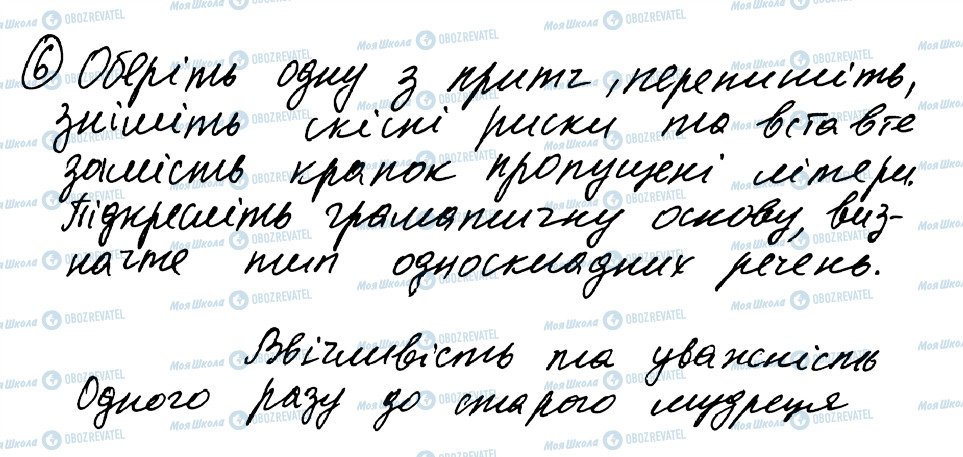 6 Оберіть одну з притч, перепишіть,
зніміть скісні риски та вставте
замість крапок пропущені літери.
Підкресліть граматичну основу, виз-
начте тип односкладних речень.
Ввічливість та уважність
Одного разу до старого мудреця